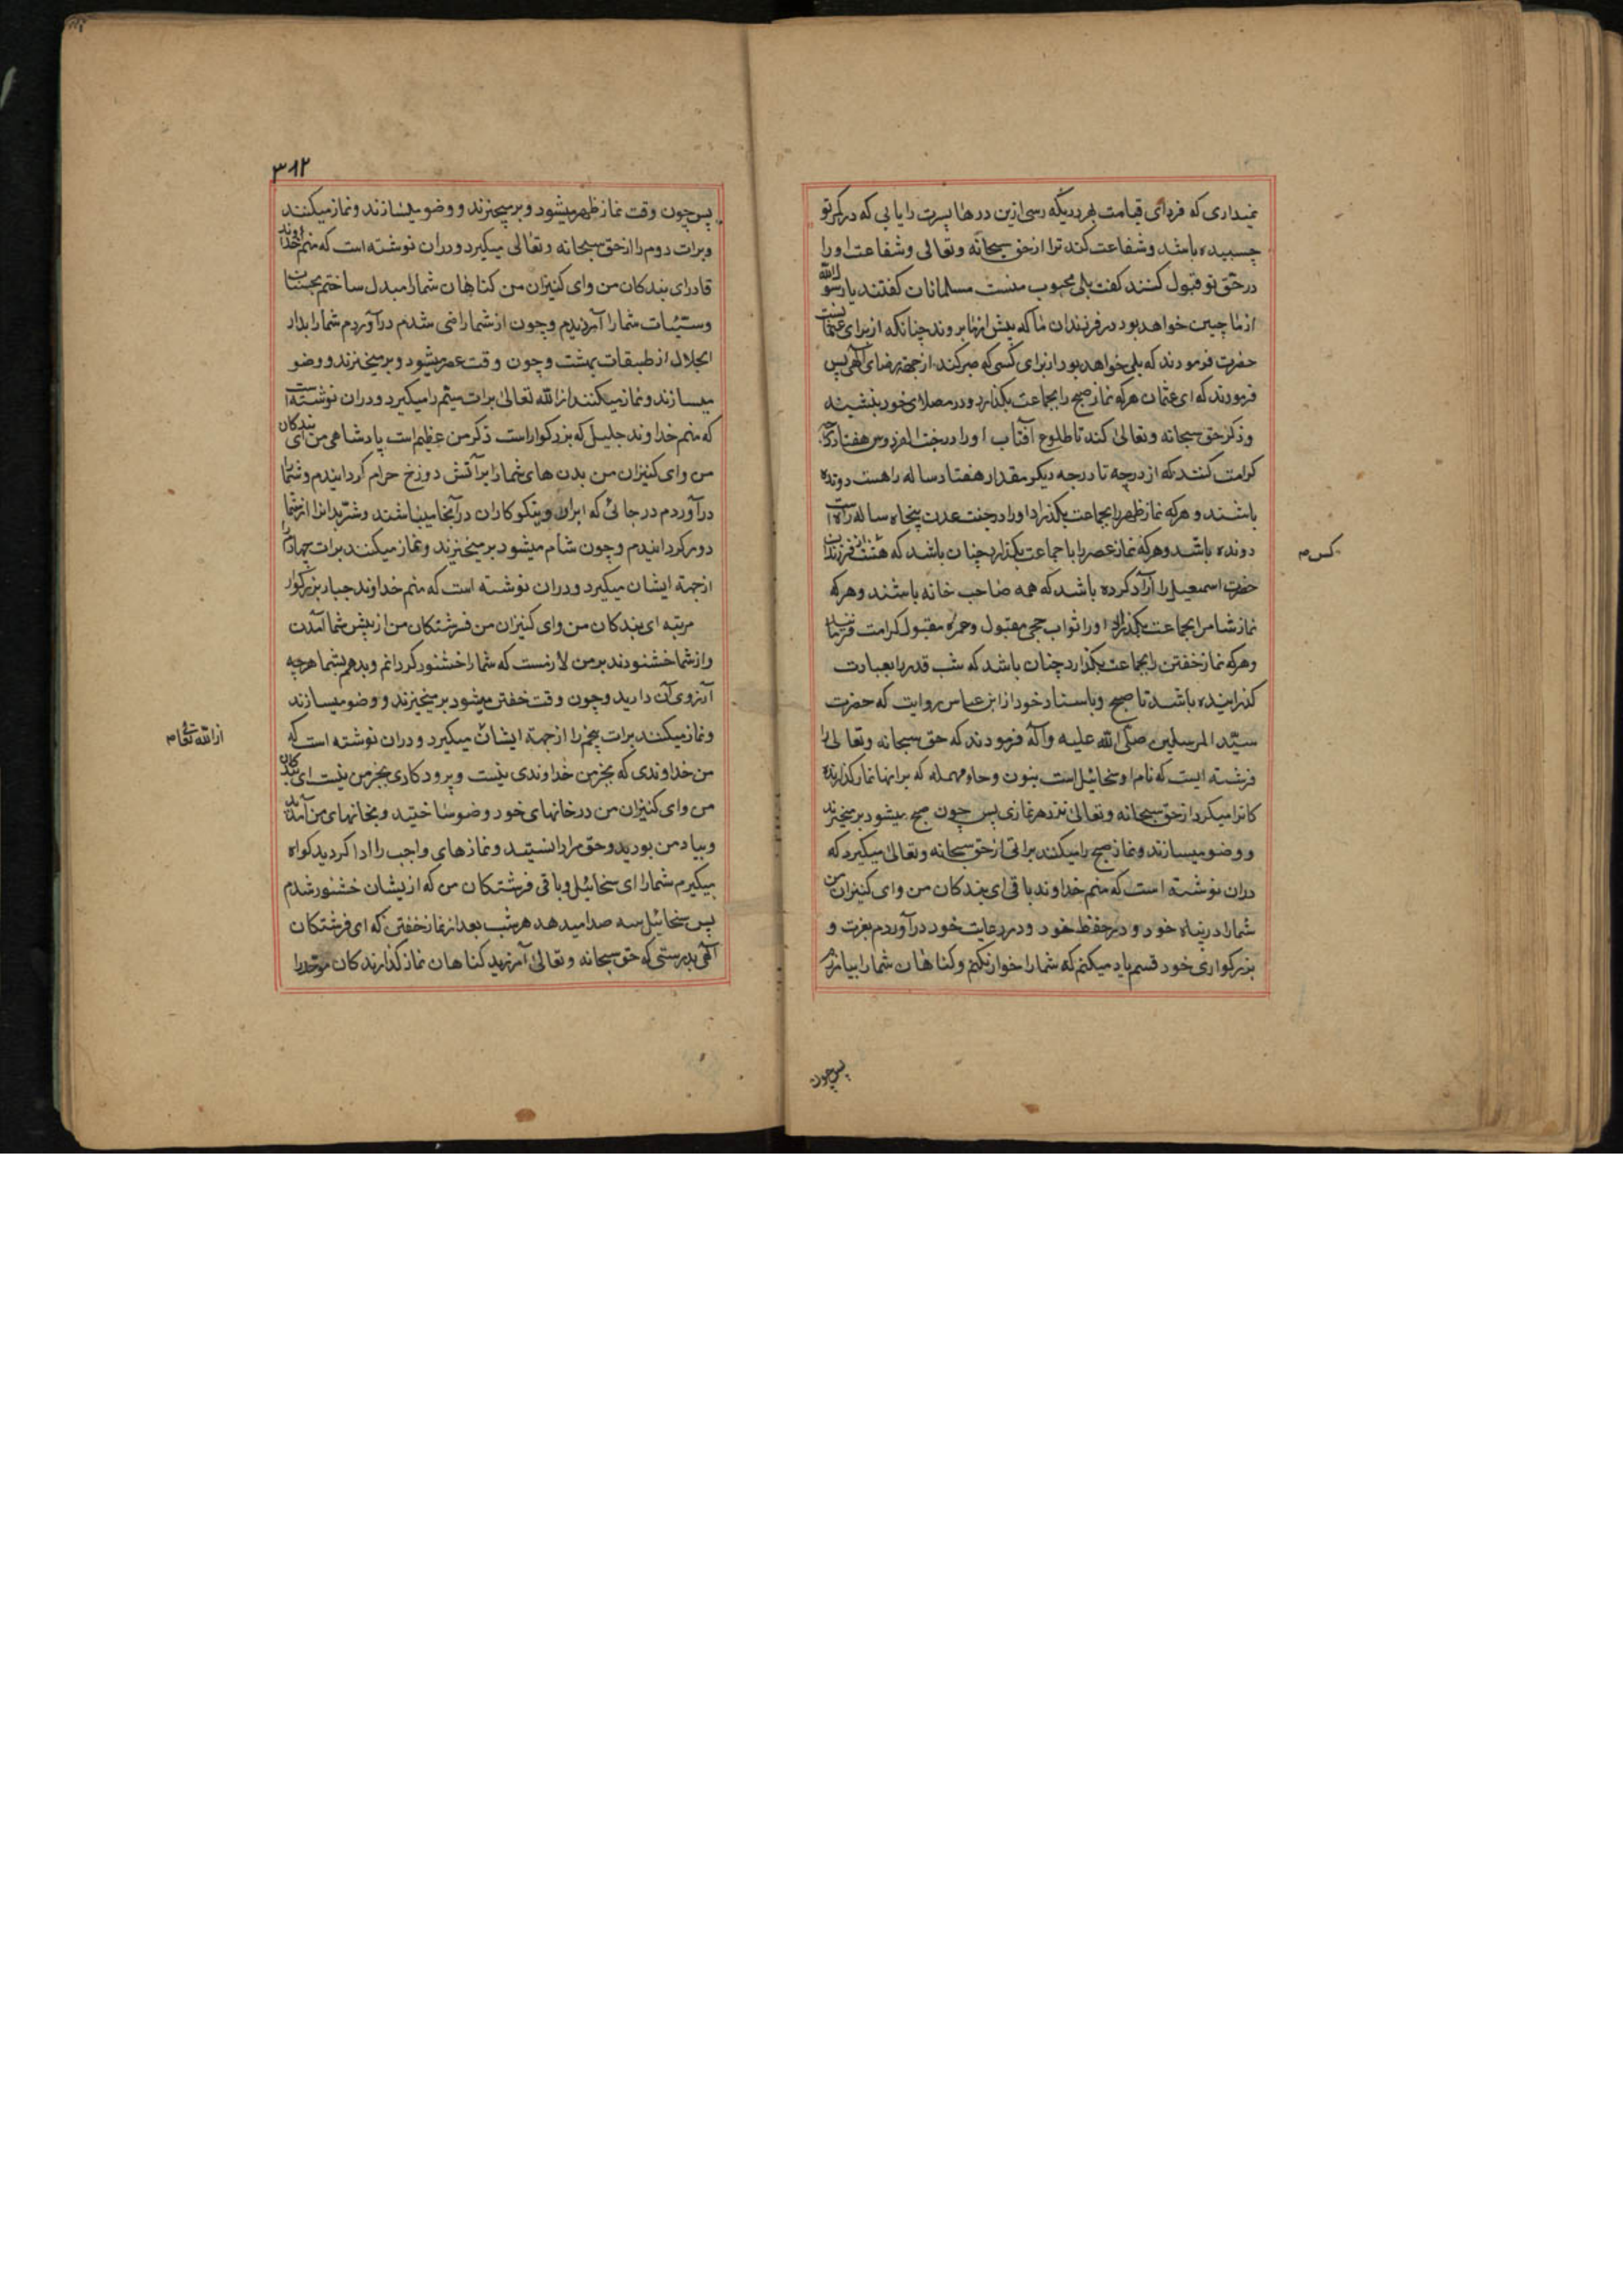 نمیداری که فردای قیامت بهر دریکه رسی ازین درها پسرت را یابی که در کمر تو
چسبیده باشد و شفاعت کند ترا از حق سبحانه و تعالی و شفاعت او را
در حق تو قبول کنند گفت بلی محبوب منست مسلمانان گفتند یا رسول الله
از ما چنین خواهد بود در فرزندان ما که پیش از ما بروند چنانکه از برای عثمانست
حضرت فرمودند که بلی خواهد بود از برای کسی که صبر کند از جهة رضای الهی پس
فرمودند که ای عثمان هرکه نماز صبح را بجماعت بکذارد و در مصلای خود بنشیند
و ذکر حق سبحانه و تعالی کند تا طلوع آفتاب او را در جنت الفردوس هفتاد درجه
کرامت کنند که از درجه تا درجه دیکر مقدار هفتاد ساله راهست دونده
باشند و هرکه نماز ظهر را بجماعت بکذارد او را در جنت عدن پنجاه ساله راه است
دونده باشد و هرکه نماز عصر را با جماعت بکذارد چنان باشد که هشت از فرزندان
کس م
حضرت اسمعیل را آزاد کرده باشد که همه صاحب خانه باشند و هرکه
نماز شام را بجماعت بکذارد او را ثواب حجی مقبول و عمره مقبول کرامت فرمایند
و هرکه نماز خفتن را بجماعت بکذارد چنان باشد که شب قدر را بعبادت
کذرانیده باشد تا صبح و باسناد خود از ابن عباس روایت که حضرت
سیّد المرسلین صلّی الله علیه و آله فرمودند که حق سبحانه و تعالی را
فرشته ایست که نام او سخائیل است بنون و حاء مهمله که براتها نماز کذارنده
کانرا میکیرد از حق سبحانه و تعالی نزد هر نمازی پس چون صبح میشود بر میخیزند
و وضو میسازند و نماز صبح را میکنند براتی از حق سبحانه و تعالی میکیرد که
دران نوشته است که منم خداوند باقی ای بندکان من و ای کنیزان من
شما را در پناه خود و در حفظ خود و در رعایت خود در آوردم بعزت و
بزرکواری خود قسم یاد میکنم که شما را خوار نکنم و کناهان شما را بیامرزم
پس چون
۳۱۲
پس چون وقت نماز ظهر میشود و بر میخیزند و وضو میسازند و نماز میکنند
و برات دوم را از حق سبحانه و تعالی میکیرد و دران نوشته است که منم خداوند
قادر ای بندکان من و ای کنیزان من کناهان شما را مبدل ساختم بحسنات
و سیّئات شما را آمرزیدم و چون از شما راضی شدم در آوردم شما را بدار
الجلال از طبقات بهشت و چون وقت عصر میشود و بر میخیزند و وضو
میسازند و نماز میکنند از الله تعالی برات سیّم را میکیرد و دران نوشته است
که منم خداوند جلیل که بزرکوار است ذکر من عظیم است پادشاهی من ای بندکان
من و ای کنیزان من بدن های شما را بر آتش دوزخ حرام کردانیدم و شما را
در آوردم در جائی که ابرار و نیکوکاران در آنجا میباشند و شرّ بدانرا از شما
دور کردانیدم و چون شام میشود بر میخیزند و نماز میکنند برات چهارم را
از جهة ایشان میکیرد و دران نوشته است که منم خداوند جبار بزرکوار
مرتبه ای بندکان من و ای کنیزان من فرشتکان من از پیش شما آمدند
و از شما خشنودند بر من لازمست که شما را خشنود کردانم و بدهم بشما هرچه
آرزوی آن دارید و چون وقت خفتن میشود بر میخیزند و وضو میسازند
و نماز میکنند برات پنجم را از جهة ایشان میکیرد و دران نوشته است که
از الله تعالی م
من خداوندی که بجز من خداوندی نیست و پرودکاری بجز من نیست ای بندکان
من و ای کنیزان من در خانهای خود وضو ساختید و بخانهای من آمدید
و بیاد من بودید و حق مرا دانستید و نمازهای واجب را ادا کردید کواه
میکیرم شما را ای سخائیل و باقی فرشتکان من که از یشان خشنود شدم
پس سخائیل سه صدا میدهد هر شب بعد از نماز خفتن که ای فرشتکان
الهی بدرستی که حق سبحانه و تعالی آمرزید کناهان نماز کذارندکان موحد را